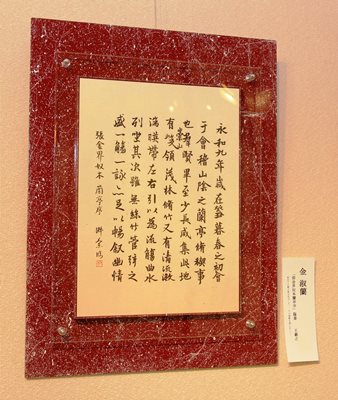 永和九年歲在癸丑暮春之初會
于會稽山陰之蘭亭脩禊事
也群賢畢至少長咸集此地
有崇山峻領茂林脩竹又有清流激
湍暎帶左右引以為流觴曲水
列坐其次雖無絲竹管弦之
盛一觴一詠亦足以暢敘幽情
張金界奴本 蘭亭序
金淑蘭
王羲之